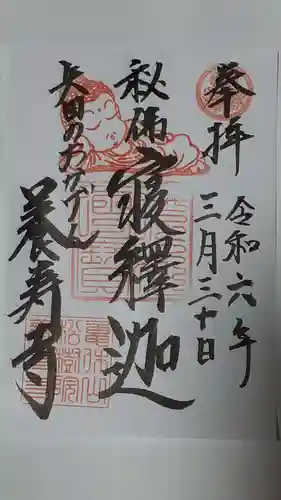 奉拝
令和六年
三月三十日
秘佛
寝釋迦
矢田のおかげん
養寿寺